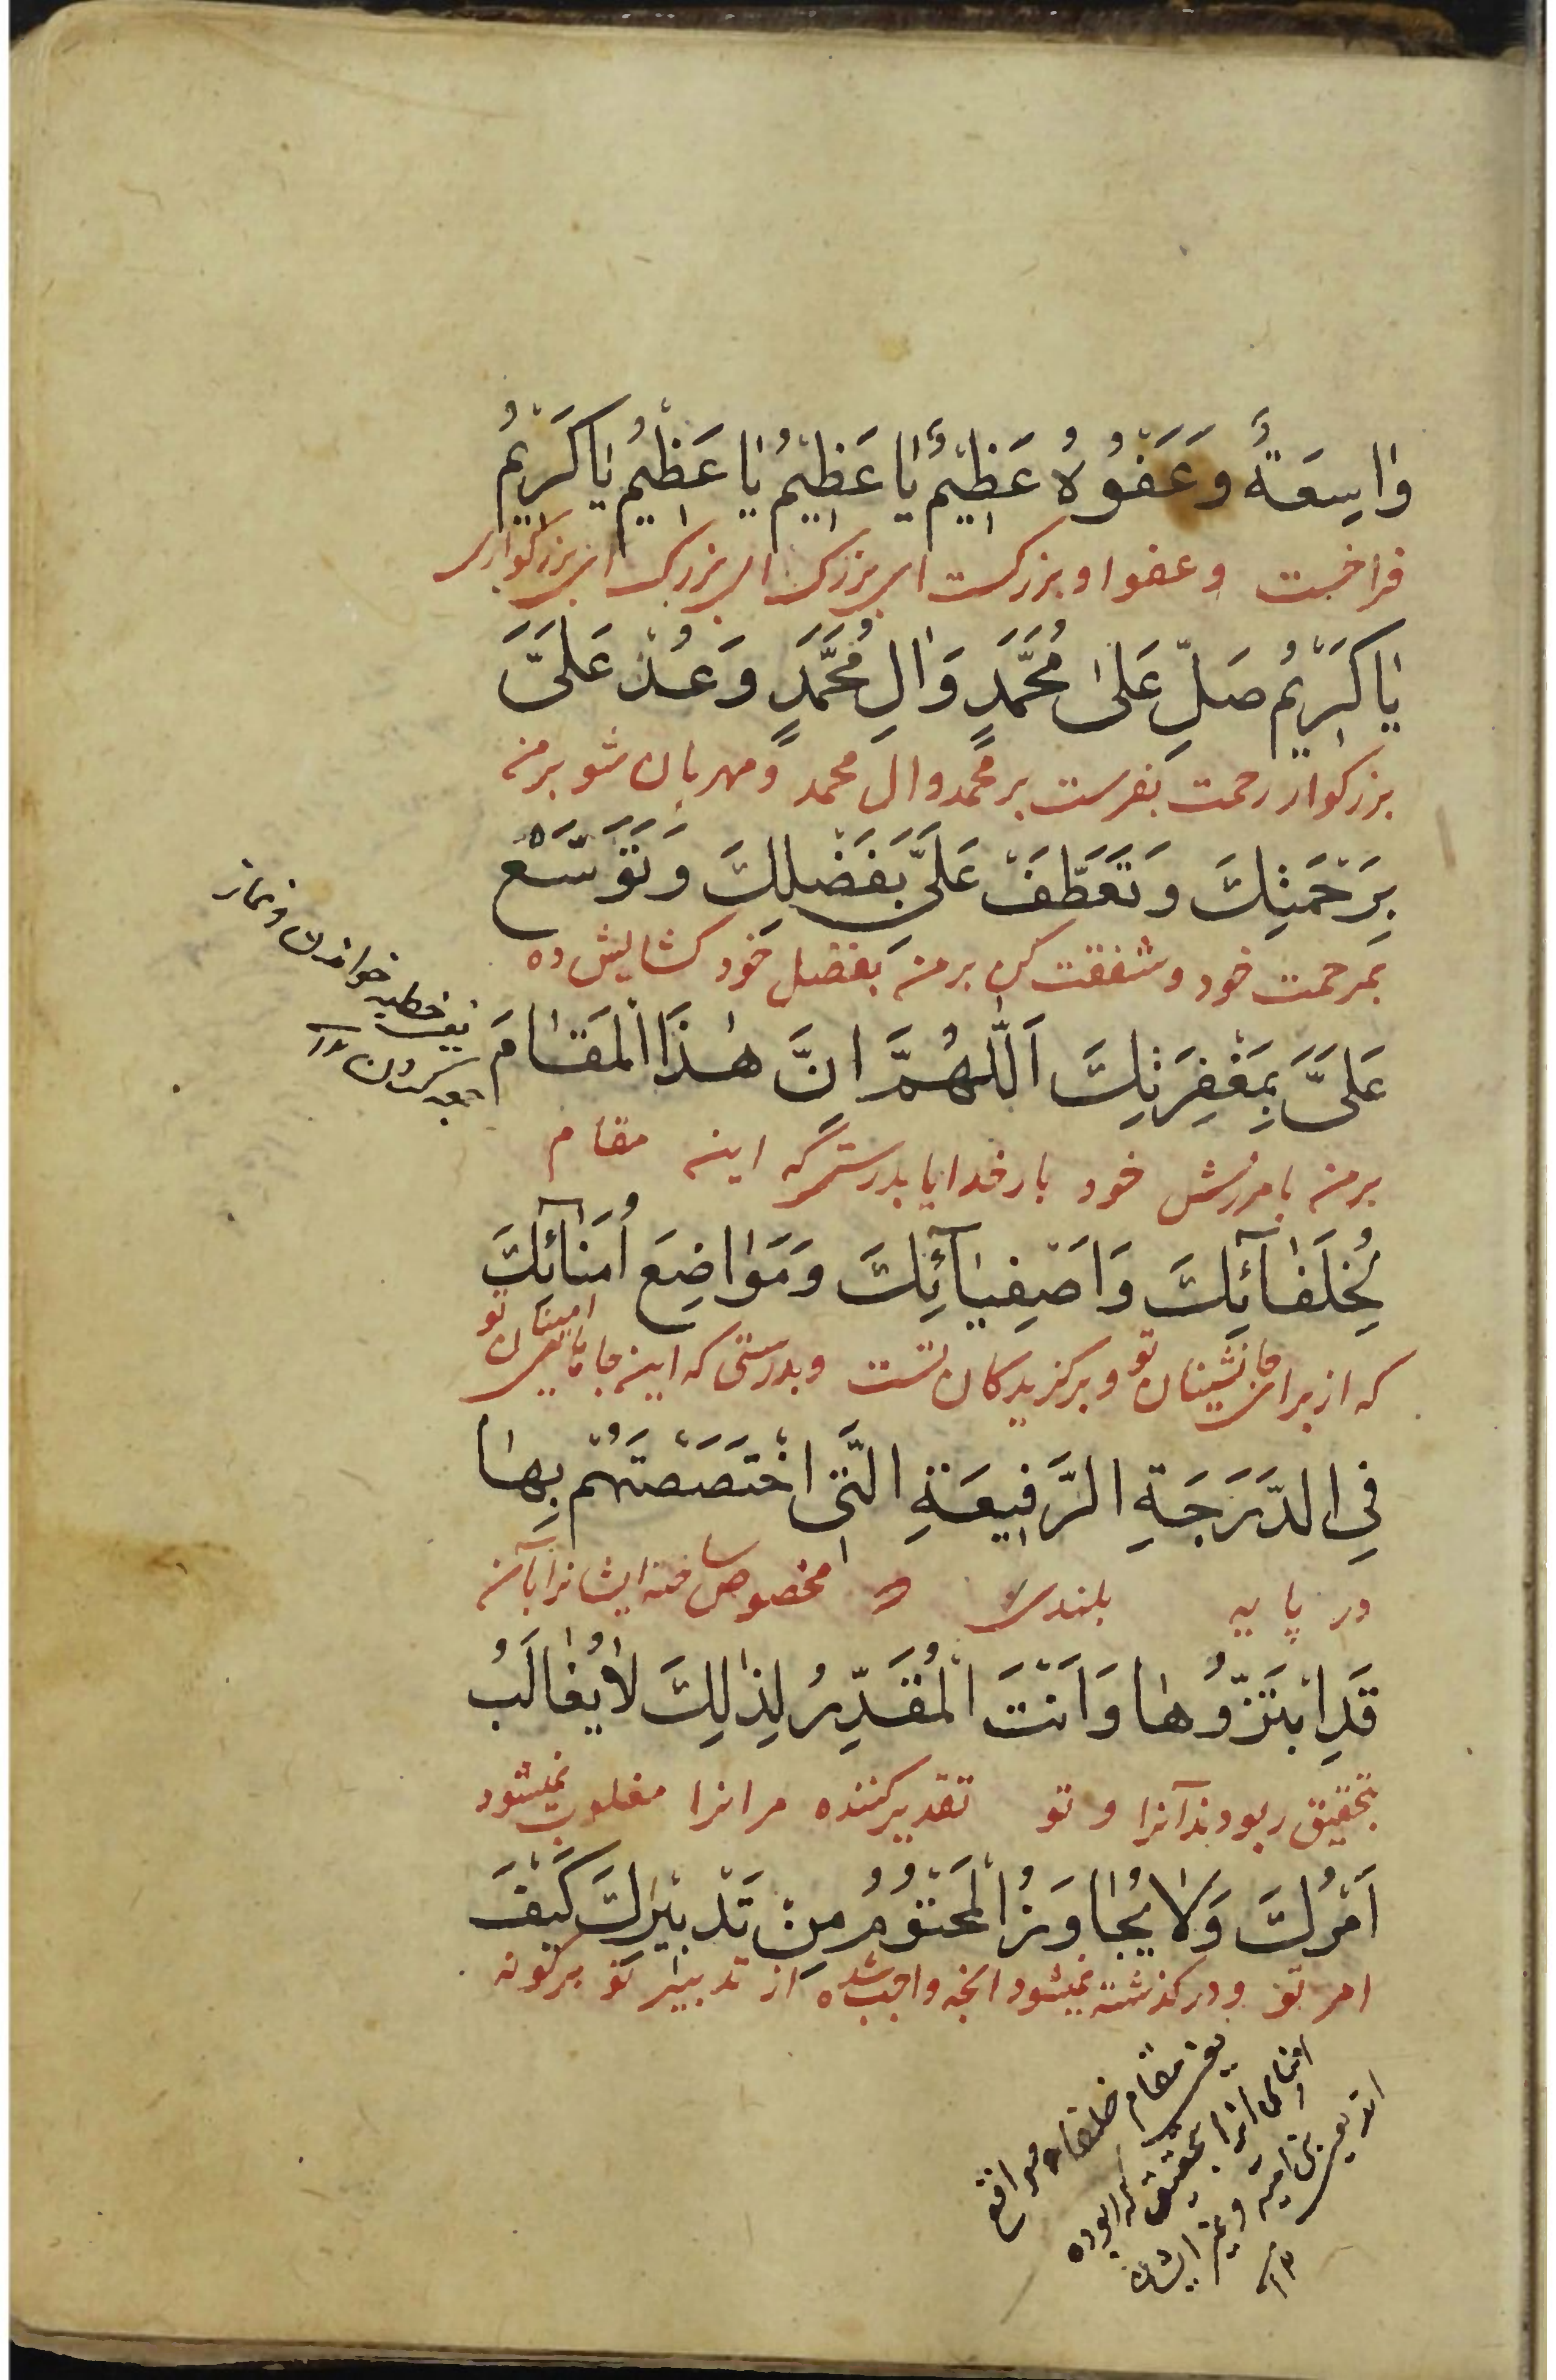 وَاسِعَةٌ وَعَفْوُهُ عَظِيْمٌ يَا عَظِيْمُ يَا عَظِيْمُ يَا كَرِيْمُ
فراخست و عفو او بزرکست ای بزرک ای بزرک ای بزرکواری
يَا كَرِيْمُ صَلِّ عَلَىٰ مُحَمَّدٍ وَاٰلِ مُحَمَّدٍ وَعُدْ عَلَىَّ
بزرکوار رحمت بفرست بر محمد وال محمد و مهربان شو بر من
بِرَحْمَتِكَ وَتَعَطَّفْ عَلَىَّ بِفَضْلِكَ وَتَوَسَّعْ
بمرحمت خود و شفقت کن بر من بفضل خود کشایش ده
عَلَىَّ بِمَغْفِرَتِكَ اَللّٰهُمَّ اِنَّ هٰذَا الْمَقَامَ
بر من بامرزش خود بار خدایا بدرستی که این مقام
لِخُلَفَائِكَ وَاَصْفِيَآئِكَ وَمَوَاضِعَ اُمَنَآئِكَ
که از برای جانشینان تو و برکزیدکان تست و بدرستی که این جاهای امینان تو
فِى الدَّرَجَةِ الرَّفِيعَةِ الَّتِى اخْتَصَصْتَهُمْ بِهَا
در پایه بلندی مخصوص ساخته ایشانرا بآن
قَدِ ابْتَزُّوهَا وَاَنْتَ الْمُقَدِّرُ لِذٰلِكَ لَا يُغَالَبُ
بتحقیق ربودند آنرا و تو تقدیر کننده مر انرا مغلوب نمیشود
اَمْرُكَ وَلَا يُجَاوَزُ الْمَحْتُوْمُ مِنْ تَدْبِيْرِكَ كَيْفَ
امر تو و در کذشته نمیشود انچه واجب شده از تدبیر تو هر کونه
یعنی خطبه خواندن و نماز
جمعه کردن ۱۲
یعنی مقام خلفا و مواضع
امنای انرا بتحقیق که ربوده
اند یعنی بنی امیه و غیر ایشان
۱۲